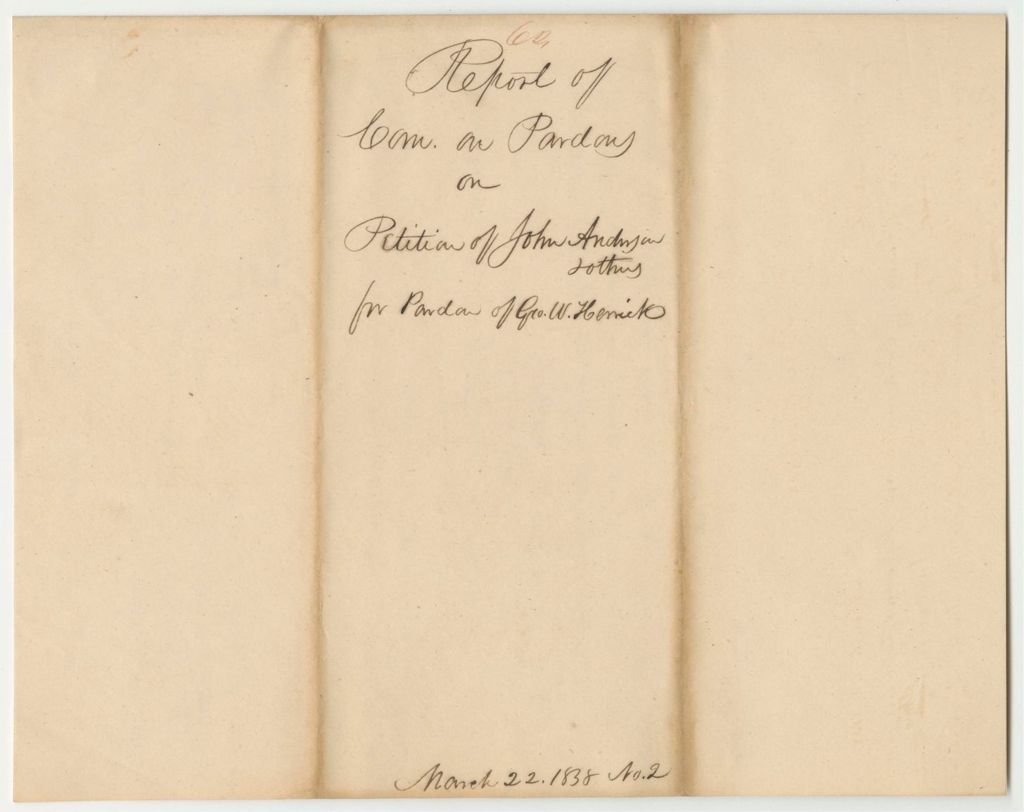 Report of
Com. on Pardons
on
Petition of John Anderson
& others
for Pardon of Geo. W. Herrick
March 22. 1838 No. 2